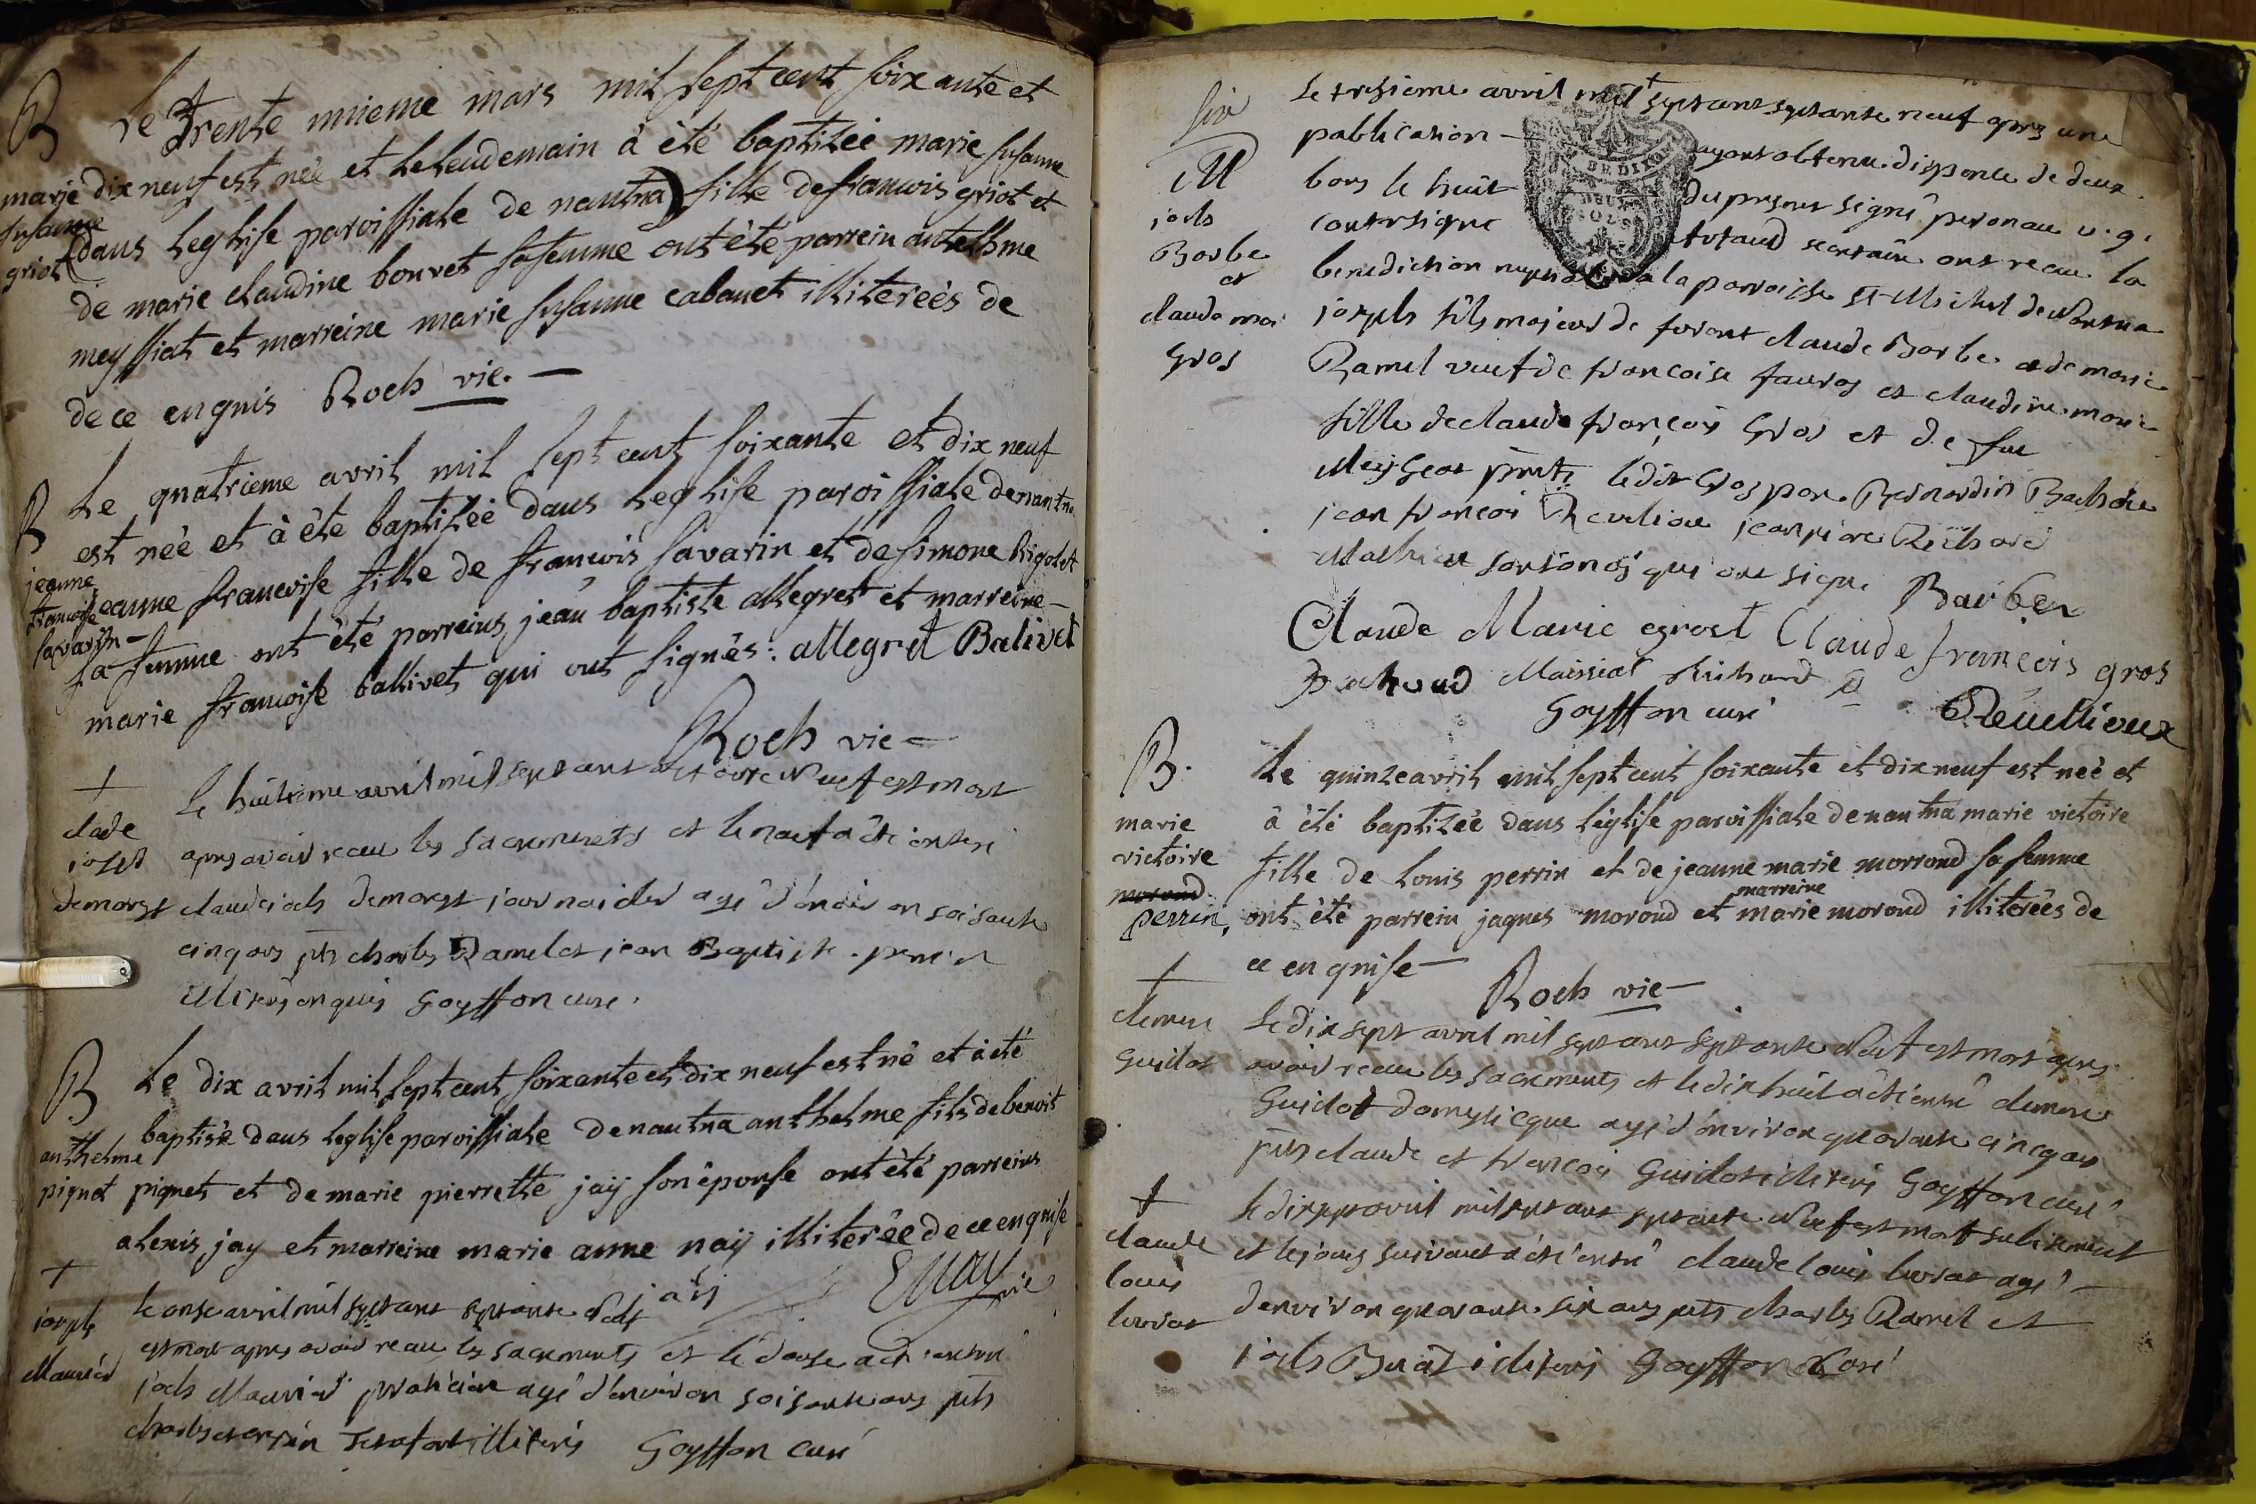 B
Le Trente unieme mars mil sept cent soixante et
marie dix neuf est neé et le lendemain à été baptizéé marie susanne
susanne
griot
(dans leglise paroissiale de nantua) fille de francois griot et
de marie claudine bonvet sa femme ont été parrein anthelme
meyssiat et marreine marie susanne cabanet illitereés de
de ce enquis Roch vic.
B
Le quatrieme avril mil sept cent soixante et dix neuf
est neé et à éte baptizéé dans leglise paroissiale de nantua
jeanne
francoise
savarin
jeanne francoise fille de francois savarin et de simone Rigolet
sa femme ont été parreins jean baptiste allegret et marreine
marie francoise ballivet qui ont signés : allegret Balivet
Roch vic
+
Le huitieme avril mil sept cent neuf est mort
clade
josep
demorest
apres avoir receu les sacrements et le neuf a été enterré
claude josh demorest journaider agé d'environ soisante
cinq ans pnts charles Ramel et jean Baptiste perrin
illiterés enquis Goyffon curé.
B
Le dix avril mil sept cent soixante et dix neuf est né et à été
anthelme
piquet
baptisée dans leglise paroissiale de nantua anthelme fils de benoit
piquet et de marie pierrette jaÿ son épouse ont été parreins
alexis jay et marreine marie anne naÿ illiterée de ce enquise
jaÿ
vic
+
joseph
Maurier
le onse avril mil sept cent septante neuf
est mort apres avoir receu les sacrements et le douse a été enterré
josh Maurier praticien agé d'environ soisante ans pnts
charles illiterés Goyffon curé
six
M
josh
Barbe
et
claude marie
Gros
Le tresieme avril mil sept cent septante neuf apres une
publication ayant obtenu dispense de deux
bans le huit du present signé peronau v. g.
contresigné secretaire ont receu la
benediction nuptiale a la paroisse St Michel de Nantua
joseph fils majeur de fursent claude Barbe et de marie
Ramel veuf de francoise fauvos et claudine marie
fille de claude françois Gros et de feu
Meissiat pnts ledit Gros par Bernardin Bachoud
jean françois Reveilioux jean piere Richard
Mathieu qui ont signé Barber
Claude Marie egrost Claude françois gros
Bachoud Maissiat Richard
Goyffon curé Reveillioux
B.
marie
victoire
morond
perrin,
Le quinze avril mil sept cent soixante et dix neuf est neé et
à été baptizéé dans léglise paroissiale de nantua marie victoire
fille de Louis perrin et de jeanne marie morrond sa femme
marreine
ont été parrein jaques morond et marie morond illiterées de
ce enquise
Roch vic
+
clemence
Guidot
Le dix sept avril mil sept cent septante neuf est mort apres
avoir receu les sacrements et le dix huit a été enterré clemence
Guidot domesticque agé d'environ quarante cinq ans
pnts claude et françois Guidot illiterés Goyffon curé
+
claude
louis
Le dix sept avril mil sept cent septante neuf est mort subitement
et le jours suivant a été enterré claude louis agé
d'environ quarante six ans pnts charles Ramel et
josh Buat illiterés Goyffon Curé